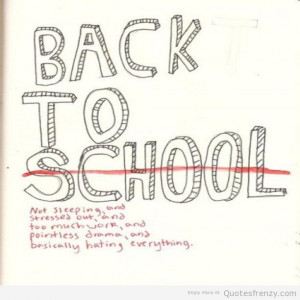 BACK
TO
SCHOOL
Not sleeping, and
stressed out, and
too much work, and
pointless drama, and
basically hating everything.
Quotesfrenzy.com